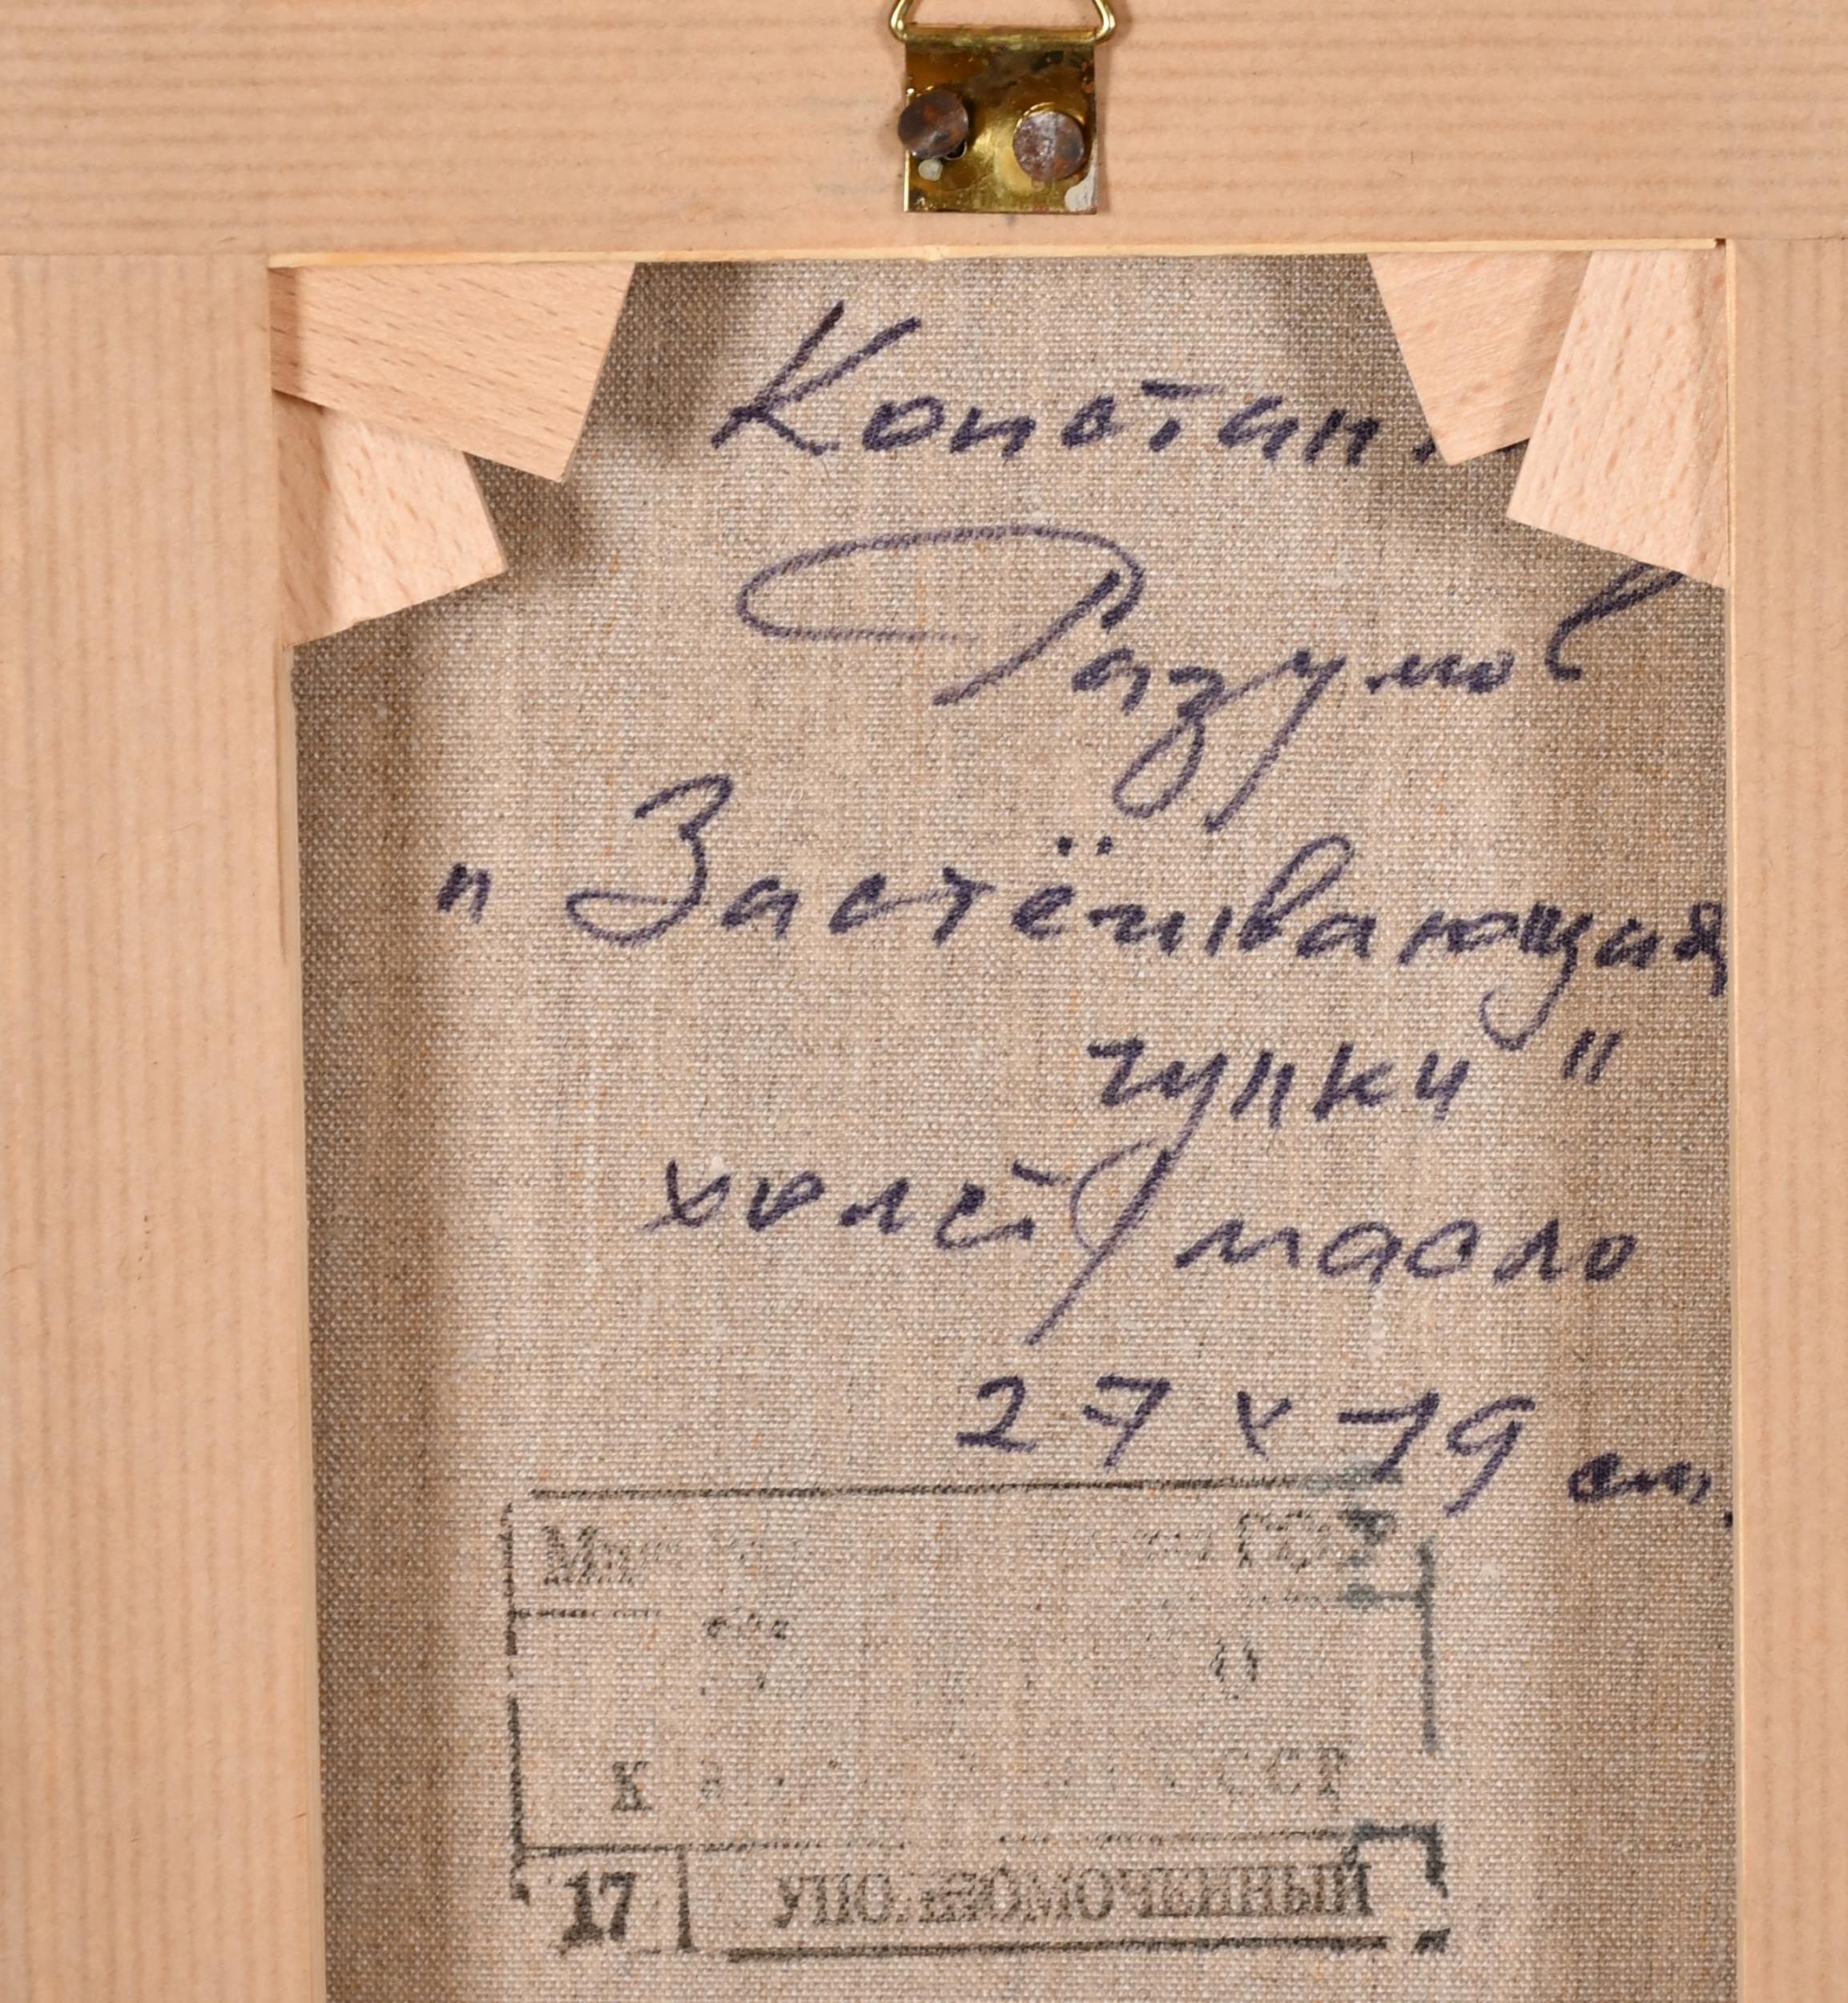 Констан
Разумов
"Застёгивающая
чулки"
холст / масло
27 x 19 см.
17 УПОЛНОМОЧЕННЫЙ